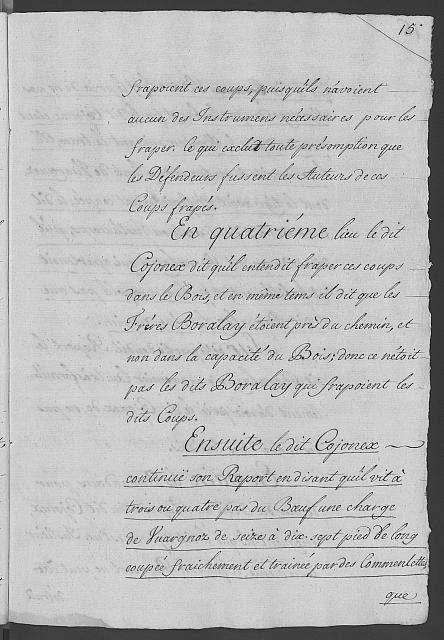 15
frapoient ces coups, puisqu'ils n'avoient
aucun des Instrumens nécessaires pour les
fraper. Ce qui exclut toute présomption que
les Défendeurs fussent les Auteurs de ces
Coups frapés.
En quatriéme lieu le dit
Cojonex dit qu'il entendit fraper ces coups
dans le Bois, et en même tems il dit que les
Fréres Boralay étoient près du chemin, et
non dans la capacité du Bois; donc ce n'étoit
pas les dits Boralay qui frapoient les
dits Coups.
Ensuite le dit Cojonex
continuë son Raport en disant qu'il vit à
trois ou quatre pas du Bœuf une charge
de Vuargnoz de seize à dix-sept pied de long
coupée fraichement et trainée par des Commentettes
que